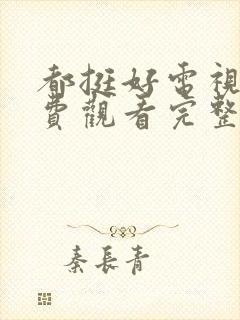 都挺好電視
費觀看完整
秦長青